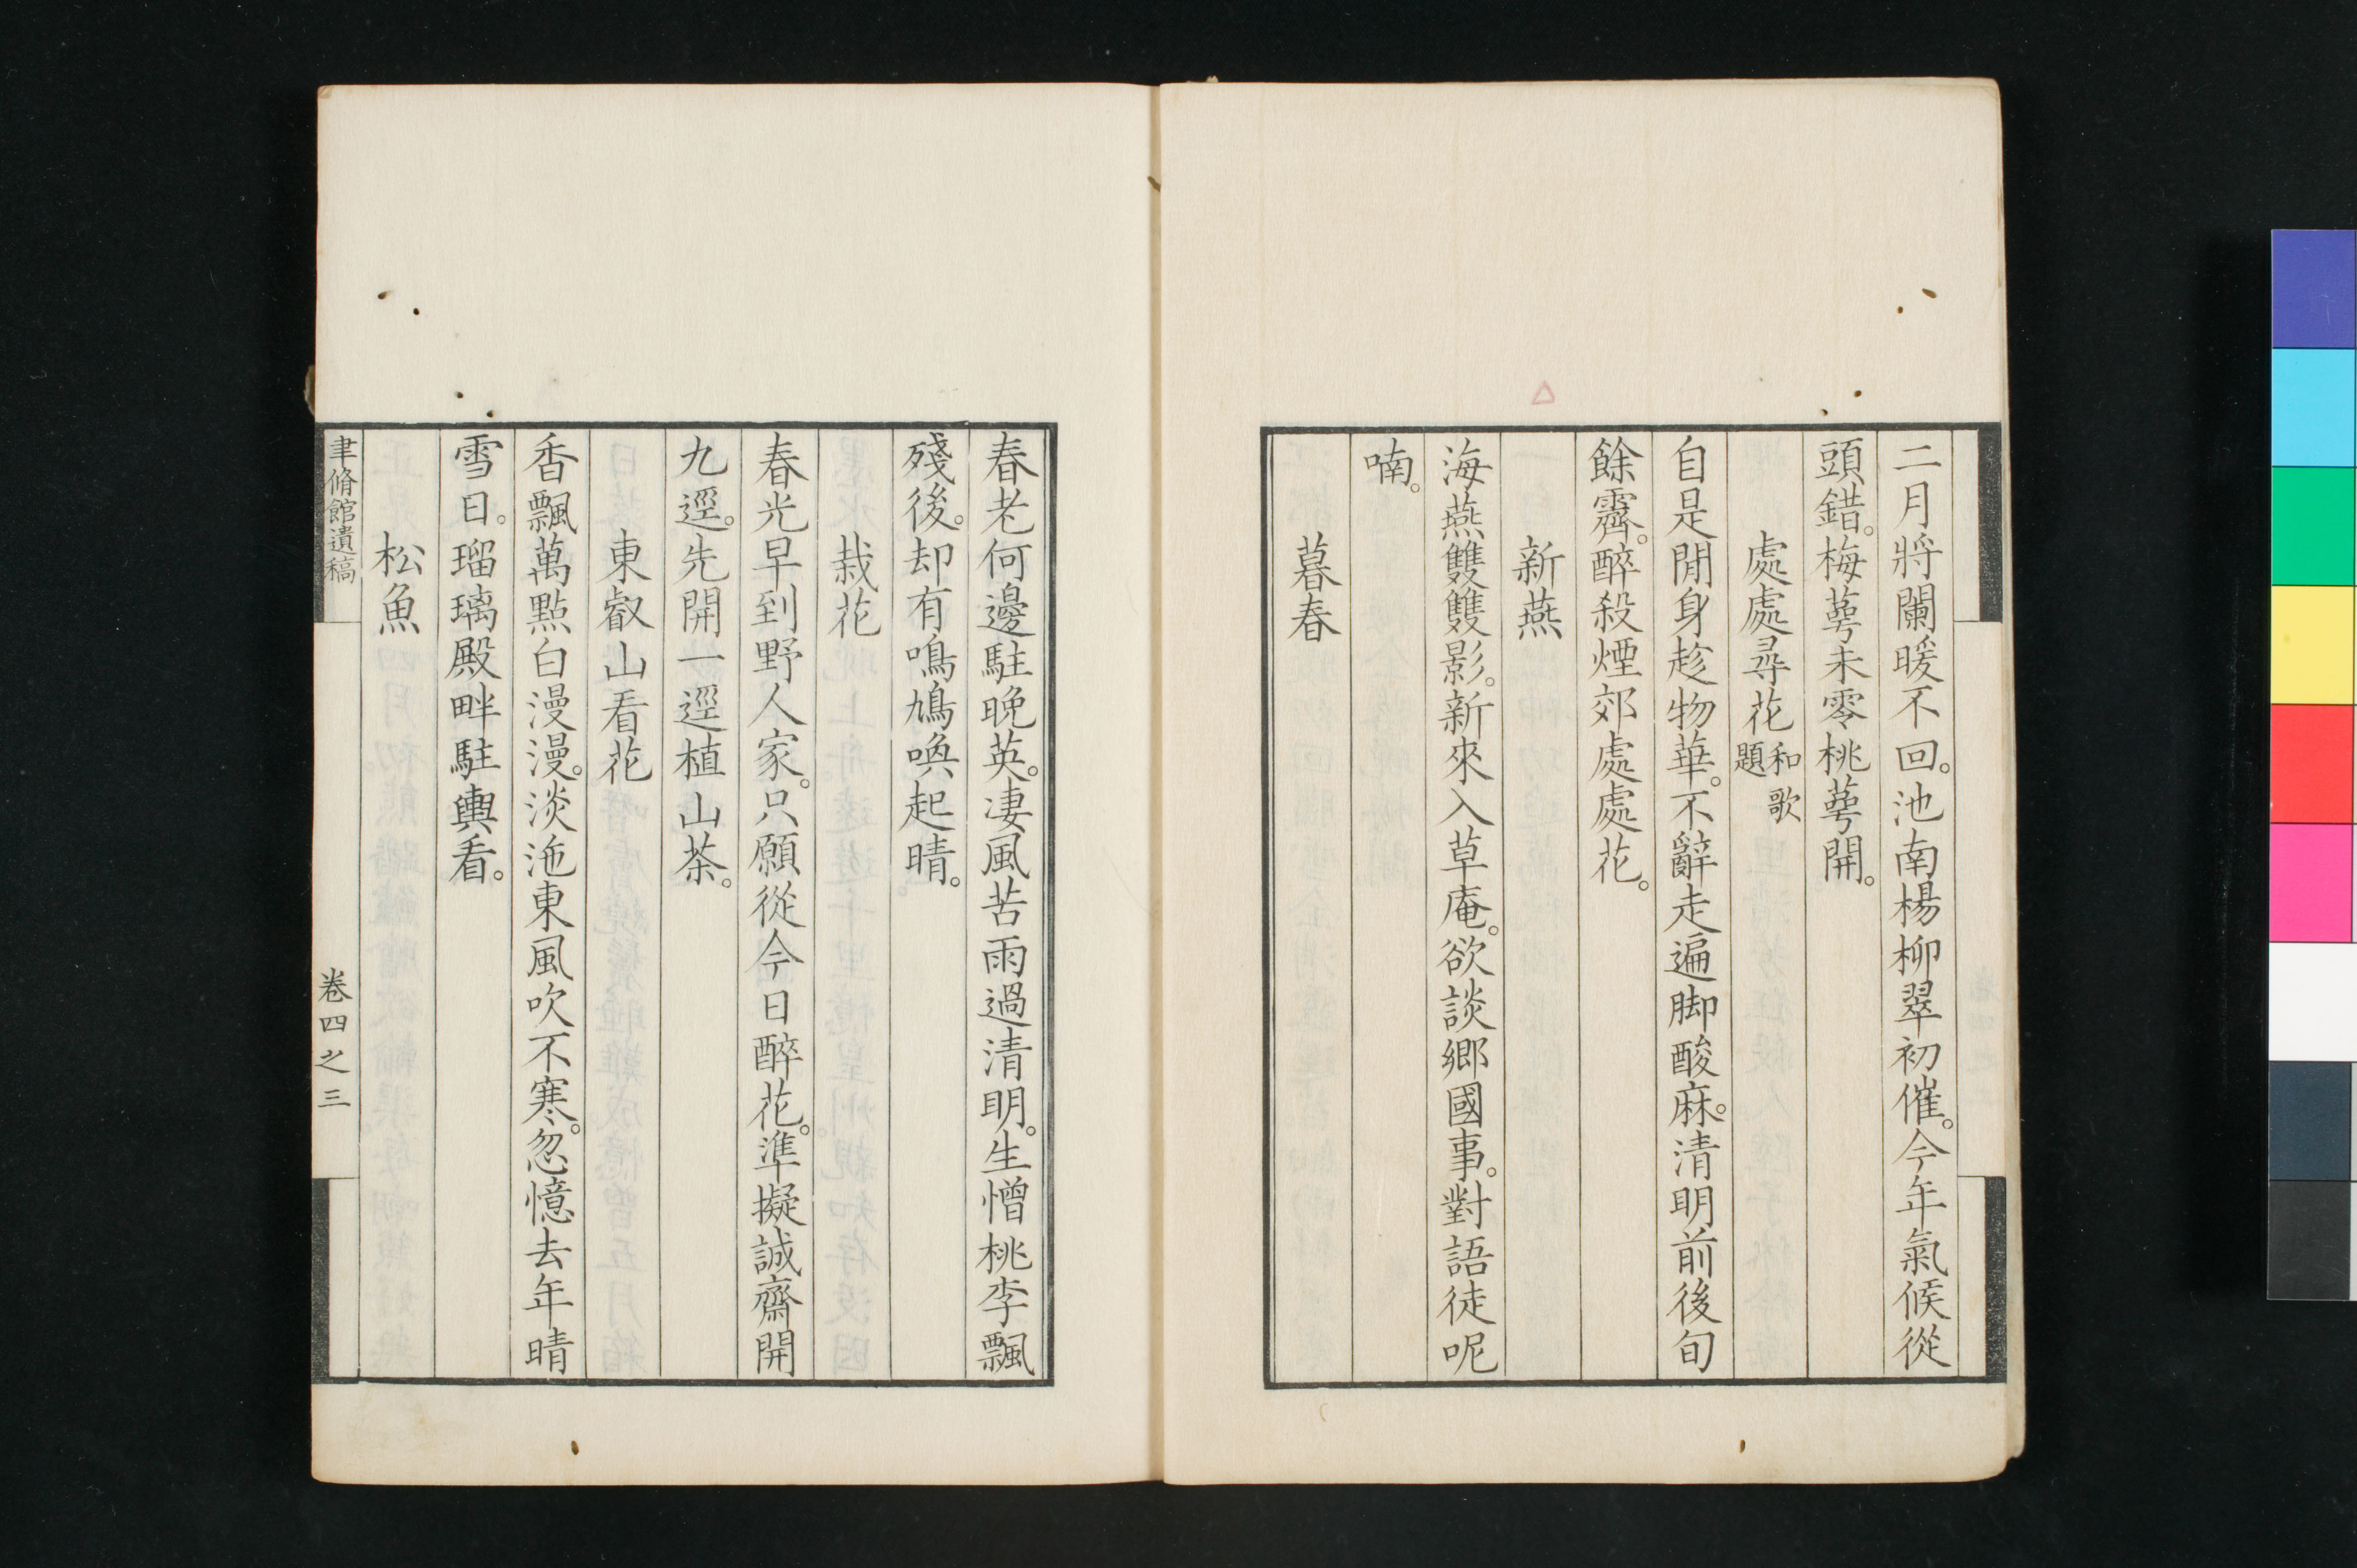 二月將闌暖不回。池南楊柳翠初催。今年氣候從
頭錯。梅萼未零桃萼開。
處處尋花和歌題
自是閒身趁物華。不辭走遍脚酸麻。清明前後旬
餘霽。醉殺煙郊處處花。
新燕
海燕雙雙影。新來入草庵。欲談鄉國事。對語徒呢
喃。
暮春
春老何邊駐晚英。凄風苦雨過清明。生憎桃李飄
殘後。却有鳴鳩喚起晴。
栽花
春光早到野人家。只願從今日醉花。準擬誠齋開
九逕。先開一逕植山茶。
東叡山看花
香飄萬點白漫漫。淡沲東風吹不寒。忽憶去年晴
雪日。瑠璃殿畔駐輿看。
松魚
聿脩館遺稿
卷四之三